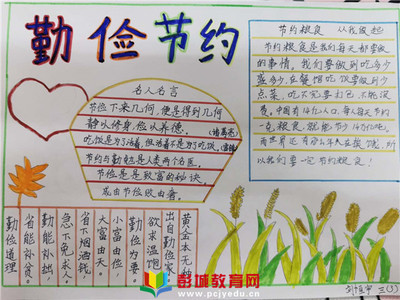 勤俭节约
名人名言
节俭下来几何,便是得到几何
静以修身,俭以养德。
(诸葛亮)
吃饭是为了活着,但活着不是为了吃饭。
节约与勤勉是人类两个名医。
节俭是是致富的秘诀。
成由节俭败由奢。
节约粮食 从我做起
节约粮食是我们每天都要做
的事情,我们要做到吃多少
盛多少,在餐馆吃饭要做到少
点菜,吃不完要打包,不能浪
费,中国有14亿人口,每人每天节约
一克粮食,就能节少14万亿吨。
所以我们要一定节约粮食!
黄金本无种
出自勤俭家
欲求温饱,
勤俭为要
小富由俭,
大富由天。
省下烟酒钱,
急下免求人。
省能补贫
勤能补拙
勤俭道理
彭城教育网
www.pcjyedu.cn